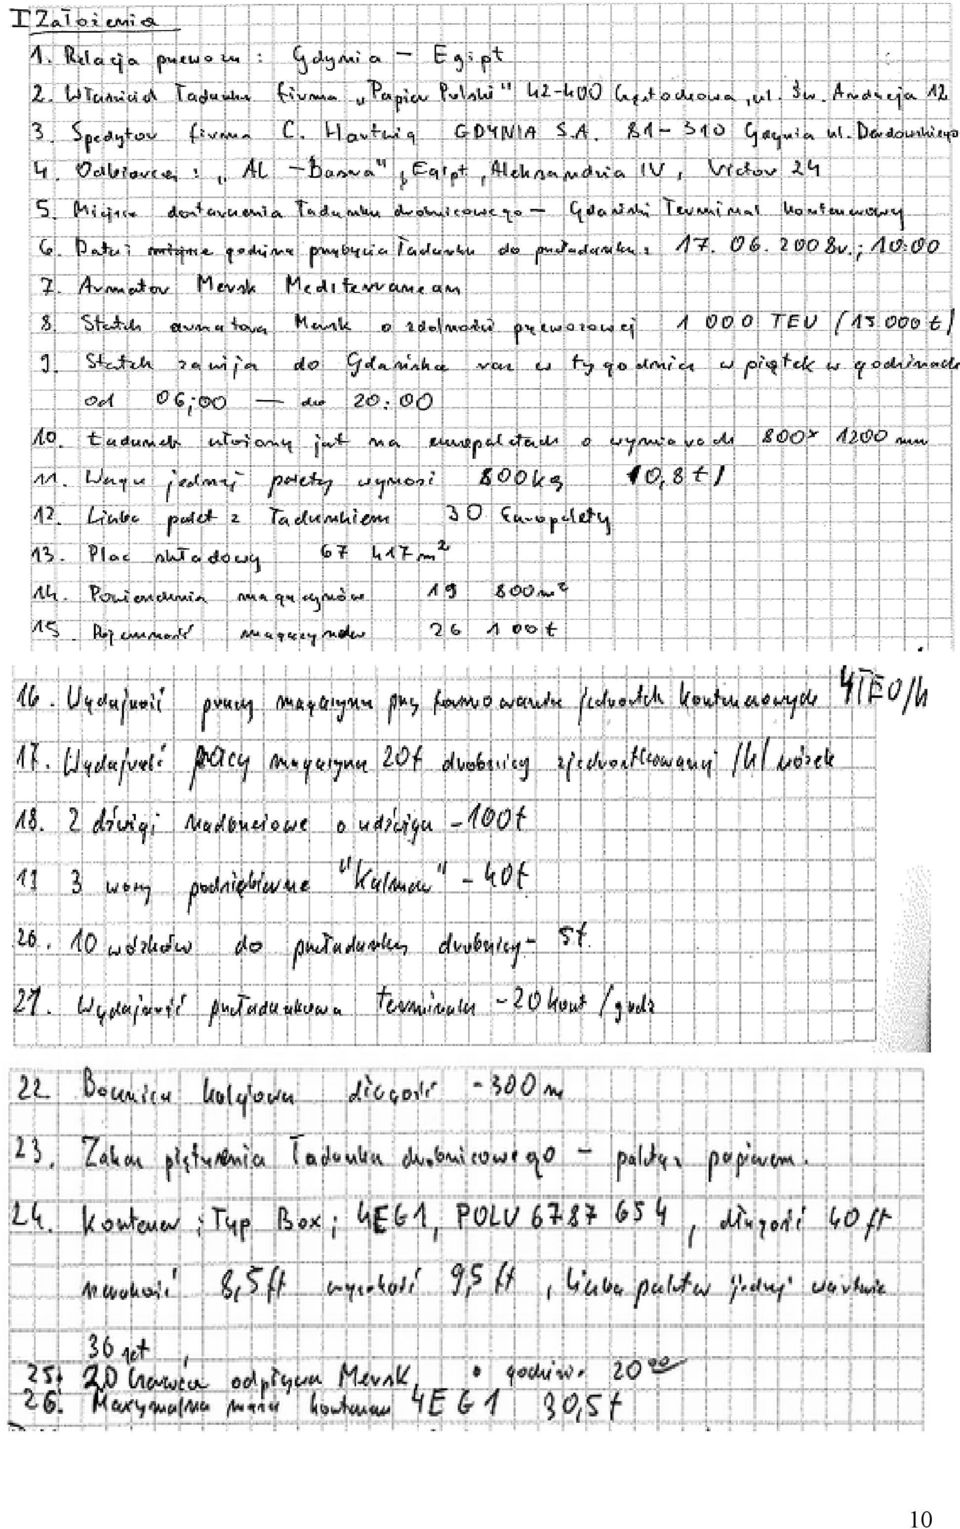 I Założenia
1. Relacja przewozu : Gdynia – Egipt
2. Właściciel ładunku firma „Papier Polski" 42-400 Częstochowa, ul. Św. Andrzeja 12
3. Spedytor firma C. Hartwig GDYNIA S.A. 81-310 Gdynia ul. Derdowskiego
4. Odbiorca : „AL -Basra", Egipt, Aleksandria IV, Victor 24
5. Miejsce dostarczenia ładunku drobnicowego – Gdański Terminal kontenerowy
6. Data i godzina przybycia ładunku do przeładunku: 17. 06. 2008r.; 10:00
7. Armator Mersk Mediterranean
8. Statek armatora Mersk o zdolności przewozowej 1 000 TEU (15 000 t)
9. Statek zawija do Gdańska raz w tygodniu w piątek w godzinach
od 06:00 – do 20:00
10. Ładunek ułożony jest na europaletach o wymiarach 800x 1200 mm
11. Waga jednej palety wynosi 800kg (0,8 t)
12. Liczba palet z ładunkiem 30 Europalety
13. Plac składowy 67 417m²
14. Powierzchnia magazynów 19 800m²
15. Pojemność magazynów 26 100t
16. Wydajność pracy magazynu przy formowaniu jednostek kontenerowych 4TEU/h
17. Wydajność pracy magazynu 20t drobnicy zjednostkowanej /h/ wózek
18. 2 dźwigi nadbrzeżowe o udźwigu -100t
19 3 wozy podsiębierne "Kalmar" - 40t
20. 10 wózków do przeładunku drobnicy- 5t.
21. Wydajność przeładunkowa terminalu -20 kont /godz
22 Bocznica kolejowa długość -300 m
23. Zakaz piętrzenia ładunku drobnicowego – palety z papierem.
24. Kontener ; Typ Box ; 4EG1, POLU 6787 654, długość 40 ft
szerokość 8,5 ft wysokość 9,5 ft, liczba palet w jednej warstwie
30 szt,
25. 20 Czerwca odpływa Mersk, o godzinie 20⁰⁰
26. Maxymalna masa kontenera 4EG1 30,5 t
10